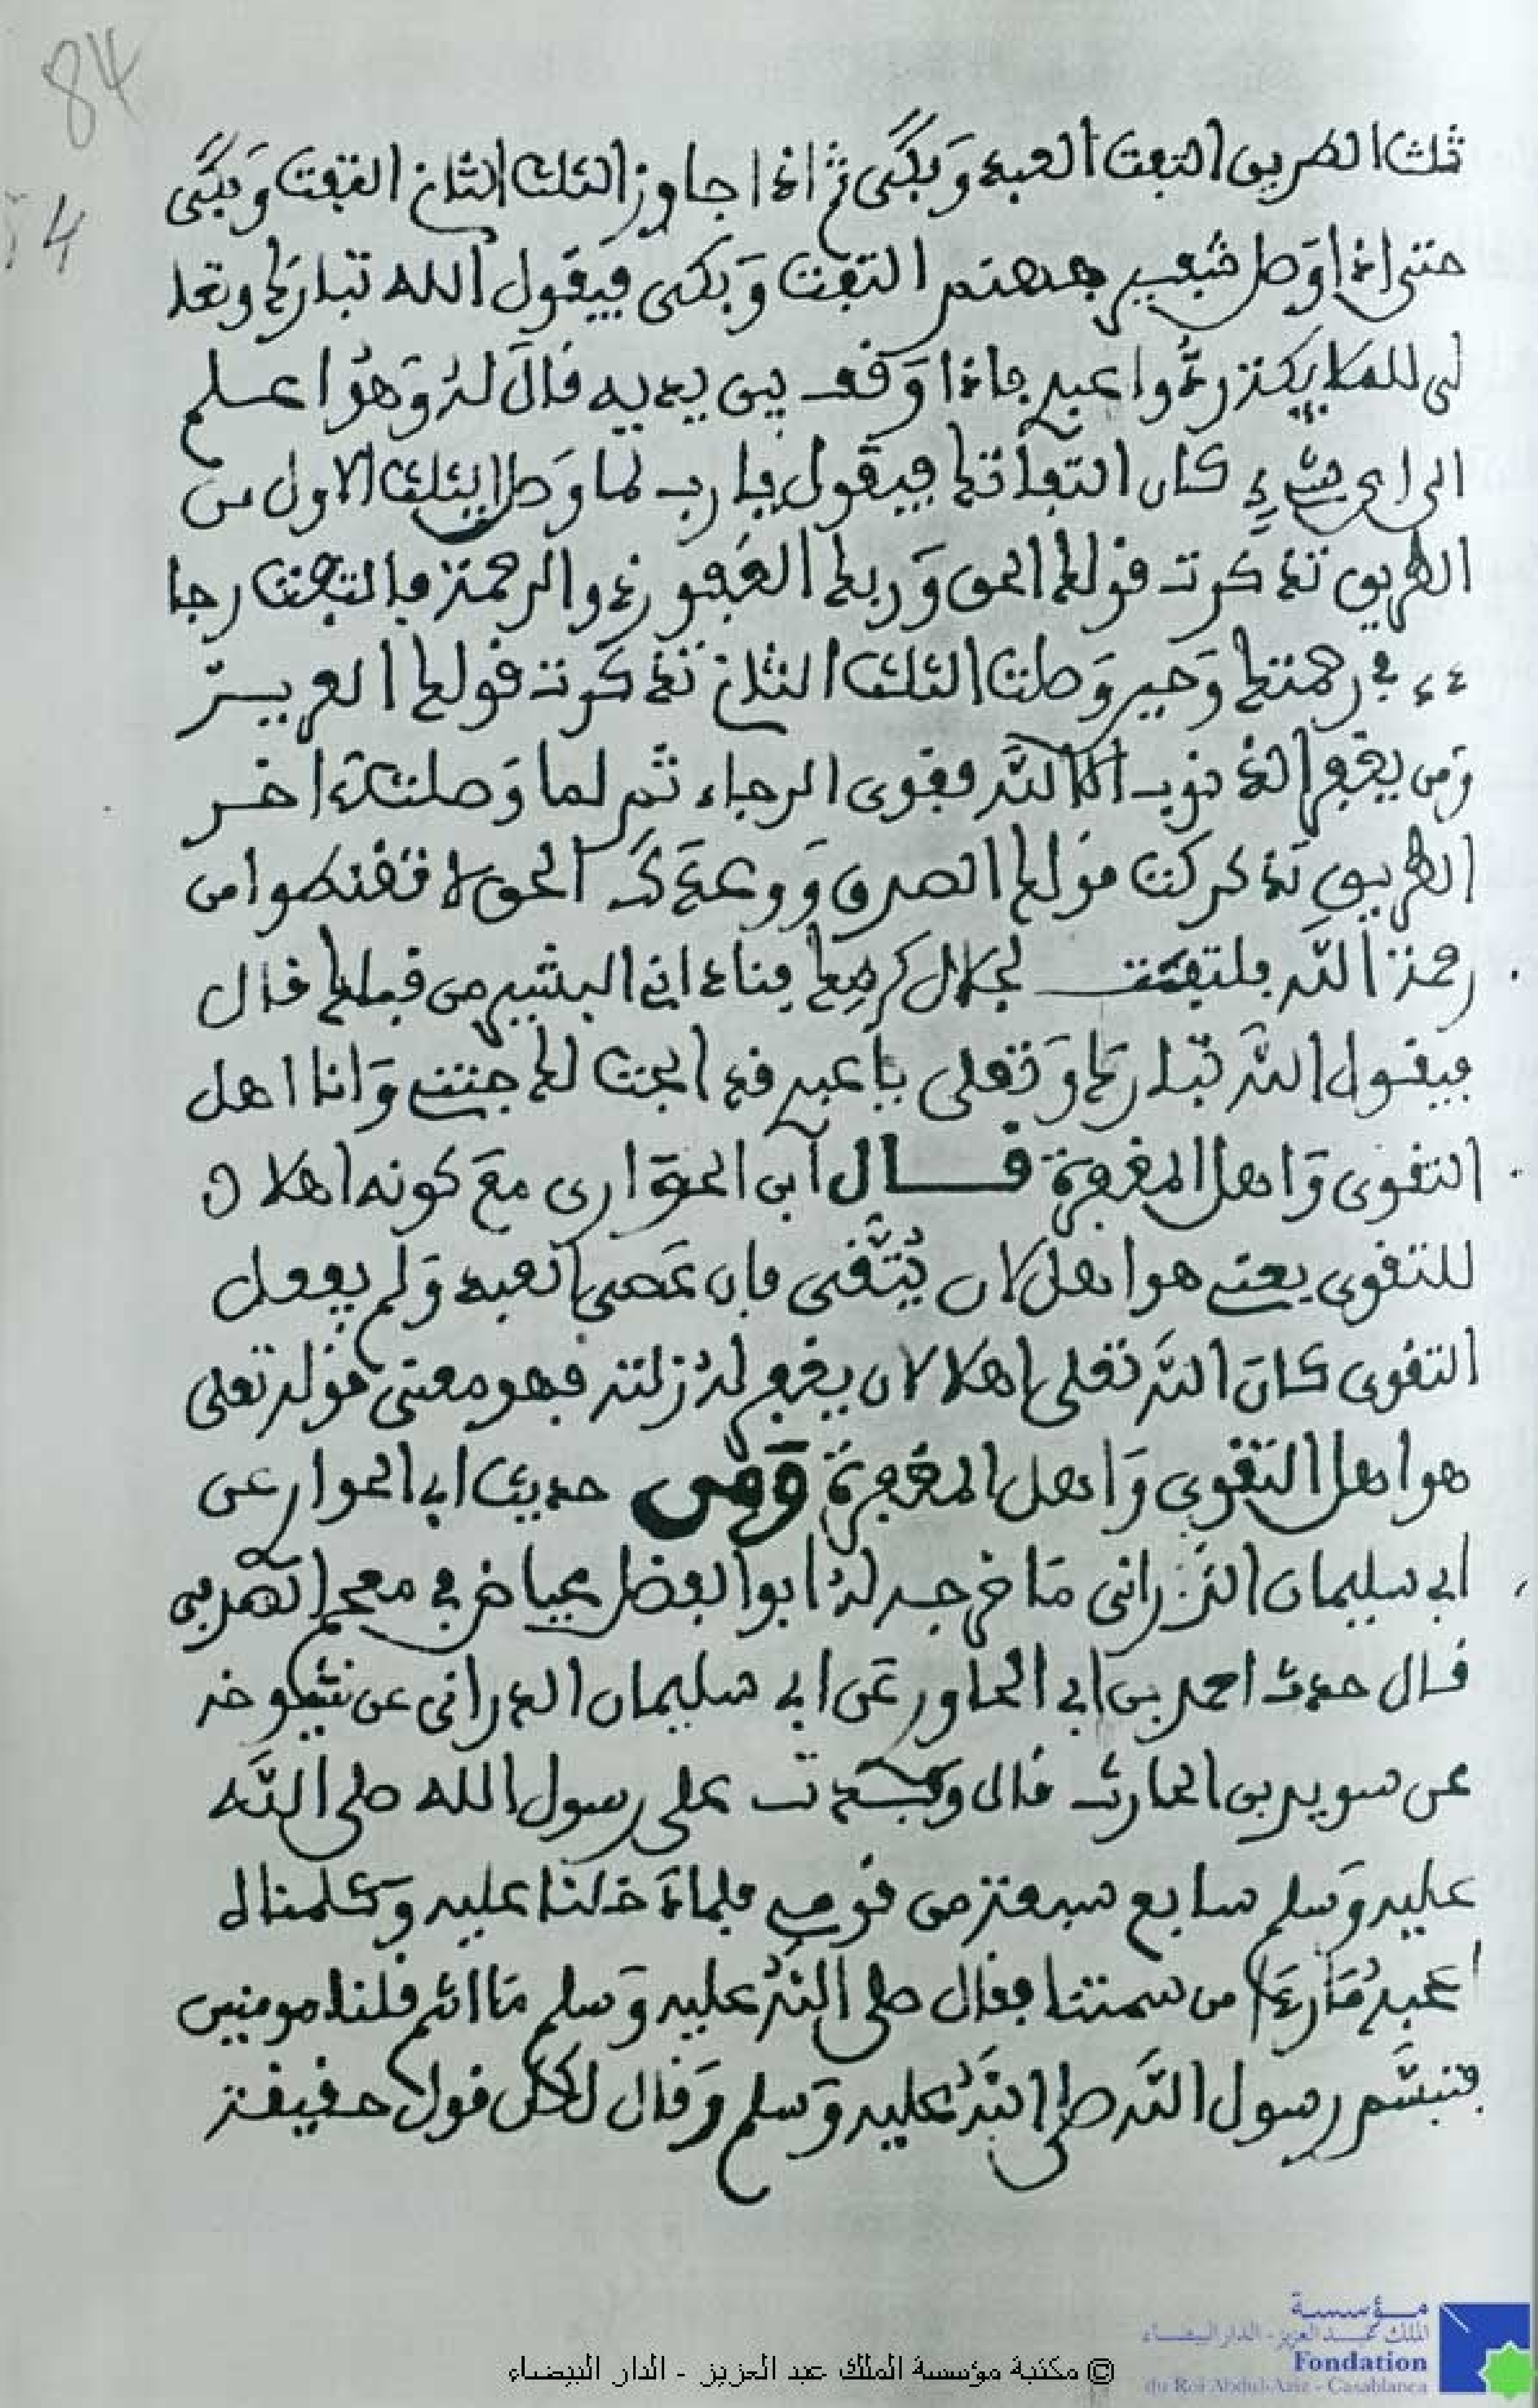 84
4
ثلث الطريق التفت العبد وَبكَى ثم اذا جاوز الثلث الثان التفت وَبكَى
حتى اذا وَصل شفير جهنم التفت وَبكى فيقول الله تبارك وتعا
لى للملايكة ردُّوا عبدي فاذا وَقف بين يديه قال لهُ وَهُوَ اعلم
الى اي شيءٍ كان التفاتك فيقول يا رب لما وَصل الثلث الاول من
الطريق تذكرت قولك الحق وَربك الغفور ذو الرحمة فالتجت رجا
ء في رحمتك وَحين وَصلت الثلث الثان تذكرت قولك العزيز
وَمن يغفر الذنوب الا الله فقوى الرجاء ثم لما وَصلت اخر
الطريق تذكرت قولك الصدق وَوعدك الحق لا تقنطوا من
رحمة الله فلتفت لجلال كرمك فناداني البشير من قبلك قال
فيقول الله تبارك وَتعلى يا عبدي قد ابحت لك جنتي وَانا اهل
التقوى وَاهل المغفرة قال ابى الحوارى مع كونه اهلا ن
للتقوى يعني هو اهل لان يُتَّقى فان عَصى العبد وَلم يفعل
التقوى كان الله تعلى اهلا لان يغفر لهُ زلته فهو معنى قوله تعلى
هو اهل التقوى وَاهل المغفرة وَمن حديث ابي الحوار عن
ابي سليمان الدراني مَا خرجه لهُ ابو الفضل عياض في معجم
قال حدث احمد بن ابي الحاور عن ابي سليمان الدراني عن شيوخه
عن سويد بن الحارث قال وفدت على رسول الله صلى الله
عليه وَسلم سابع سبعة من قومي فلما دَخلنا عليه وَكلمناه
اعجبهُ مَا رءا من سمتنا فقال صلى اللهُ عليه وَسلم مَا انتم قلنا مومنين
فتبسَّم رسول الله صلى اللهُ عليه وَسلم وَقال لكل قول حقيقة
مؤسسة
الملك عبد العزيز - الدار البيضاء
Fondation
du Roi Abdul-Aziz - Casablanca
© مكتبة مؤسسة الملك عبد العزيز - الدار البيضاء